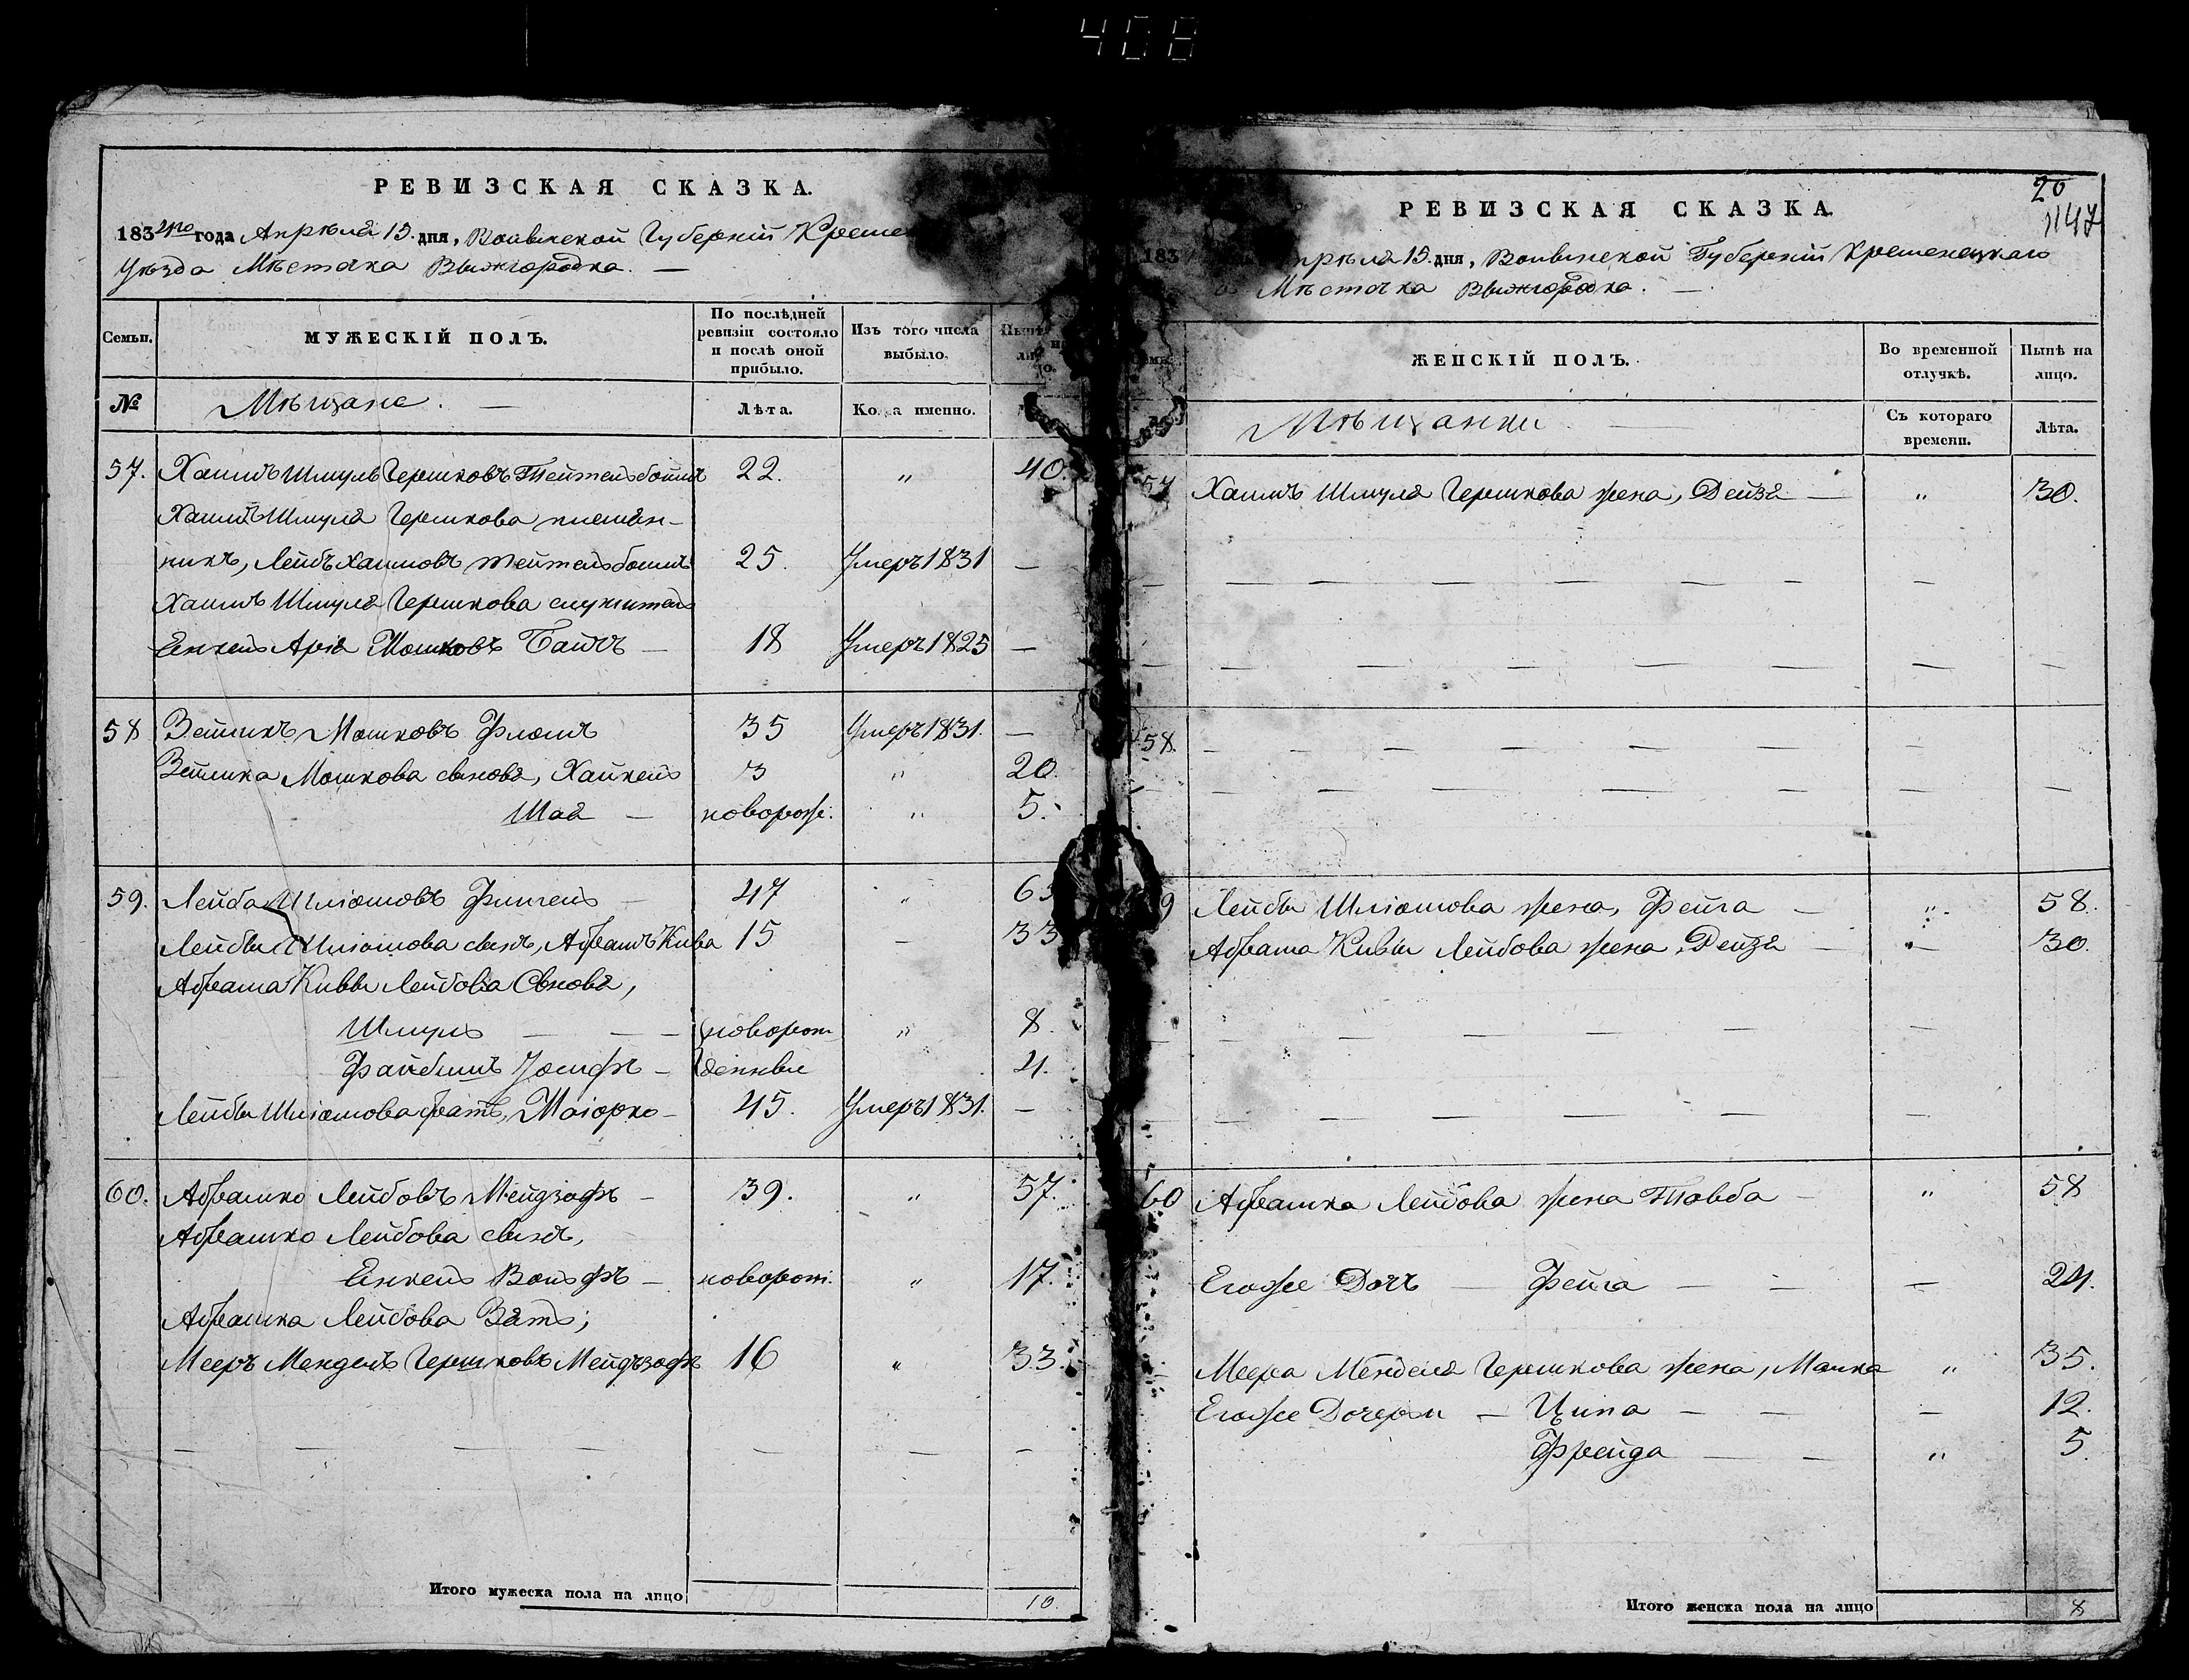 408
РЕВИЗСКАЯ СКАЗКА.
1834го года Апрѣля 15. дня, Волынской Губерніи Кремене
Уѣзда Мѣстечка Вышгородка. —
Семьи.
МУЖЕСКІЙ ПОЛЪ.
По послѣдней ревизіи состояло и послѣ оной прибыло.
Изъ того числа выбыло.
Нынѣ на лицо.
№
Мѣщане. —
Лѣта.
Когда именно.
57. Хаимъ Шмуль Гершковъ Тейтельбоймъ 22. " 40.
Хаимъ Шмуля Гершкова племян-
никъ, Лейбъ Хаимовъ Тейтельбоймъ 25. Умеръ 1831 —
Хаимъ Шмуля Гершкова служитель
Енкель Арія Мошковъ 18 Умеръ 1825 —
58 Зейликъ Мошковъ Фломъ 35 Умеръ 1831. —
Зейлика Мошкова сыновья, Хаикель 3 " 20.
Шая — новорож: " 5.
59. Лейба Шліомовъ — 47 " 65
Лейбы Шліомова сынъ, Абрамъ Кива 15 — 33
Абрама Кивы Лейбова Сыновья,
Шмуль — — — новорож " 8.
Файбишъ Іосифъ — денные 4.
Лейбы Шліомова братъ, Маіорко — 45. Умеръ 1831. —
60. Абрашко Лейбовъ Мейдзофъ — 39. " 57.
Абрашко Лейбова сынъ,
Енкель Вольфъ — новорож. " 17.
Абрашка Лейбова Зять;
Мееръ Мендель Гершковъ Мейдзофъ 16 " 33.
Итого мужеска пола на лицо 10.
20
1147
РЕВИЗСКАЯ СКАЗКА.
183 Апрѣля 15. дня, Волынской Губерніи Кременецкаго
Мѣстечка Вышгородка. —
ЖЕНСКІЙ ПОЛЪ.
Во временной отлучкѣ.
Нынѣ на лицо.
Мѣщанки
Съ котораго времени.
Лѣта.
57 Хаимъ Шмуля Гершкова жена, Дейзя — " 30.
58.
59 Лейбы Шліомова жена, Фейга — " 58.
Абрама Кивы Лейбова жена, Рейзя — 30.
60 Абрашка Лейбова жена Товба — " 58
Егоже Дочь — Фейга — — — 24.
Меера Менделя Гершкова жена, Малка " 35.
Егоже Дочери — Ципа — — — 12.
Фрейда — — " 5.
Итого женска пола на лицо 8